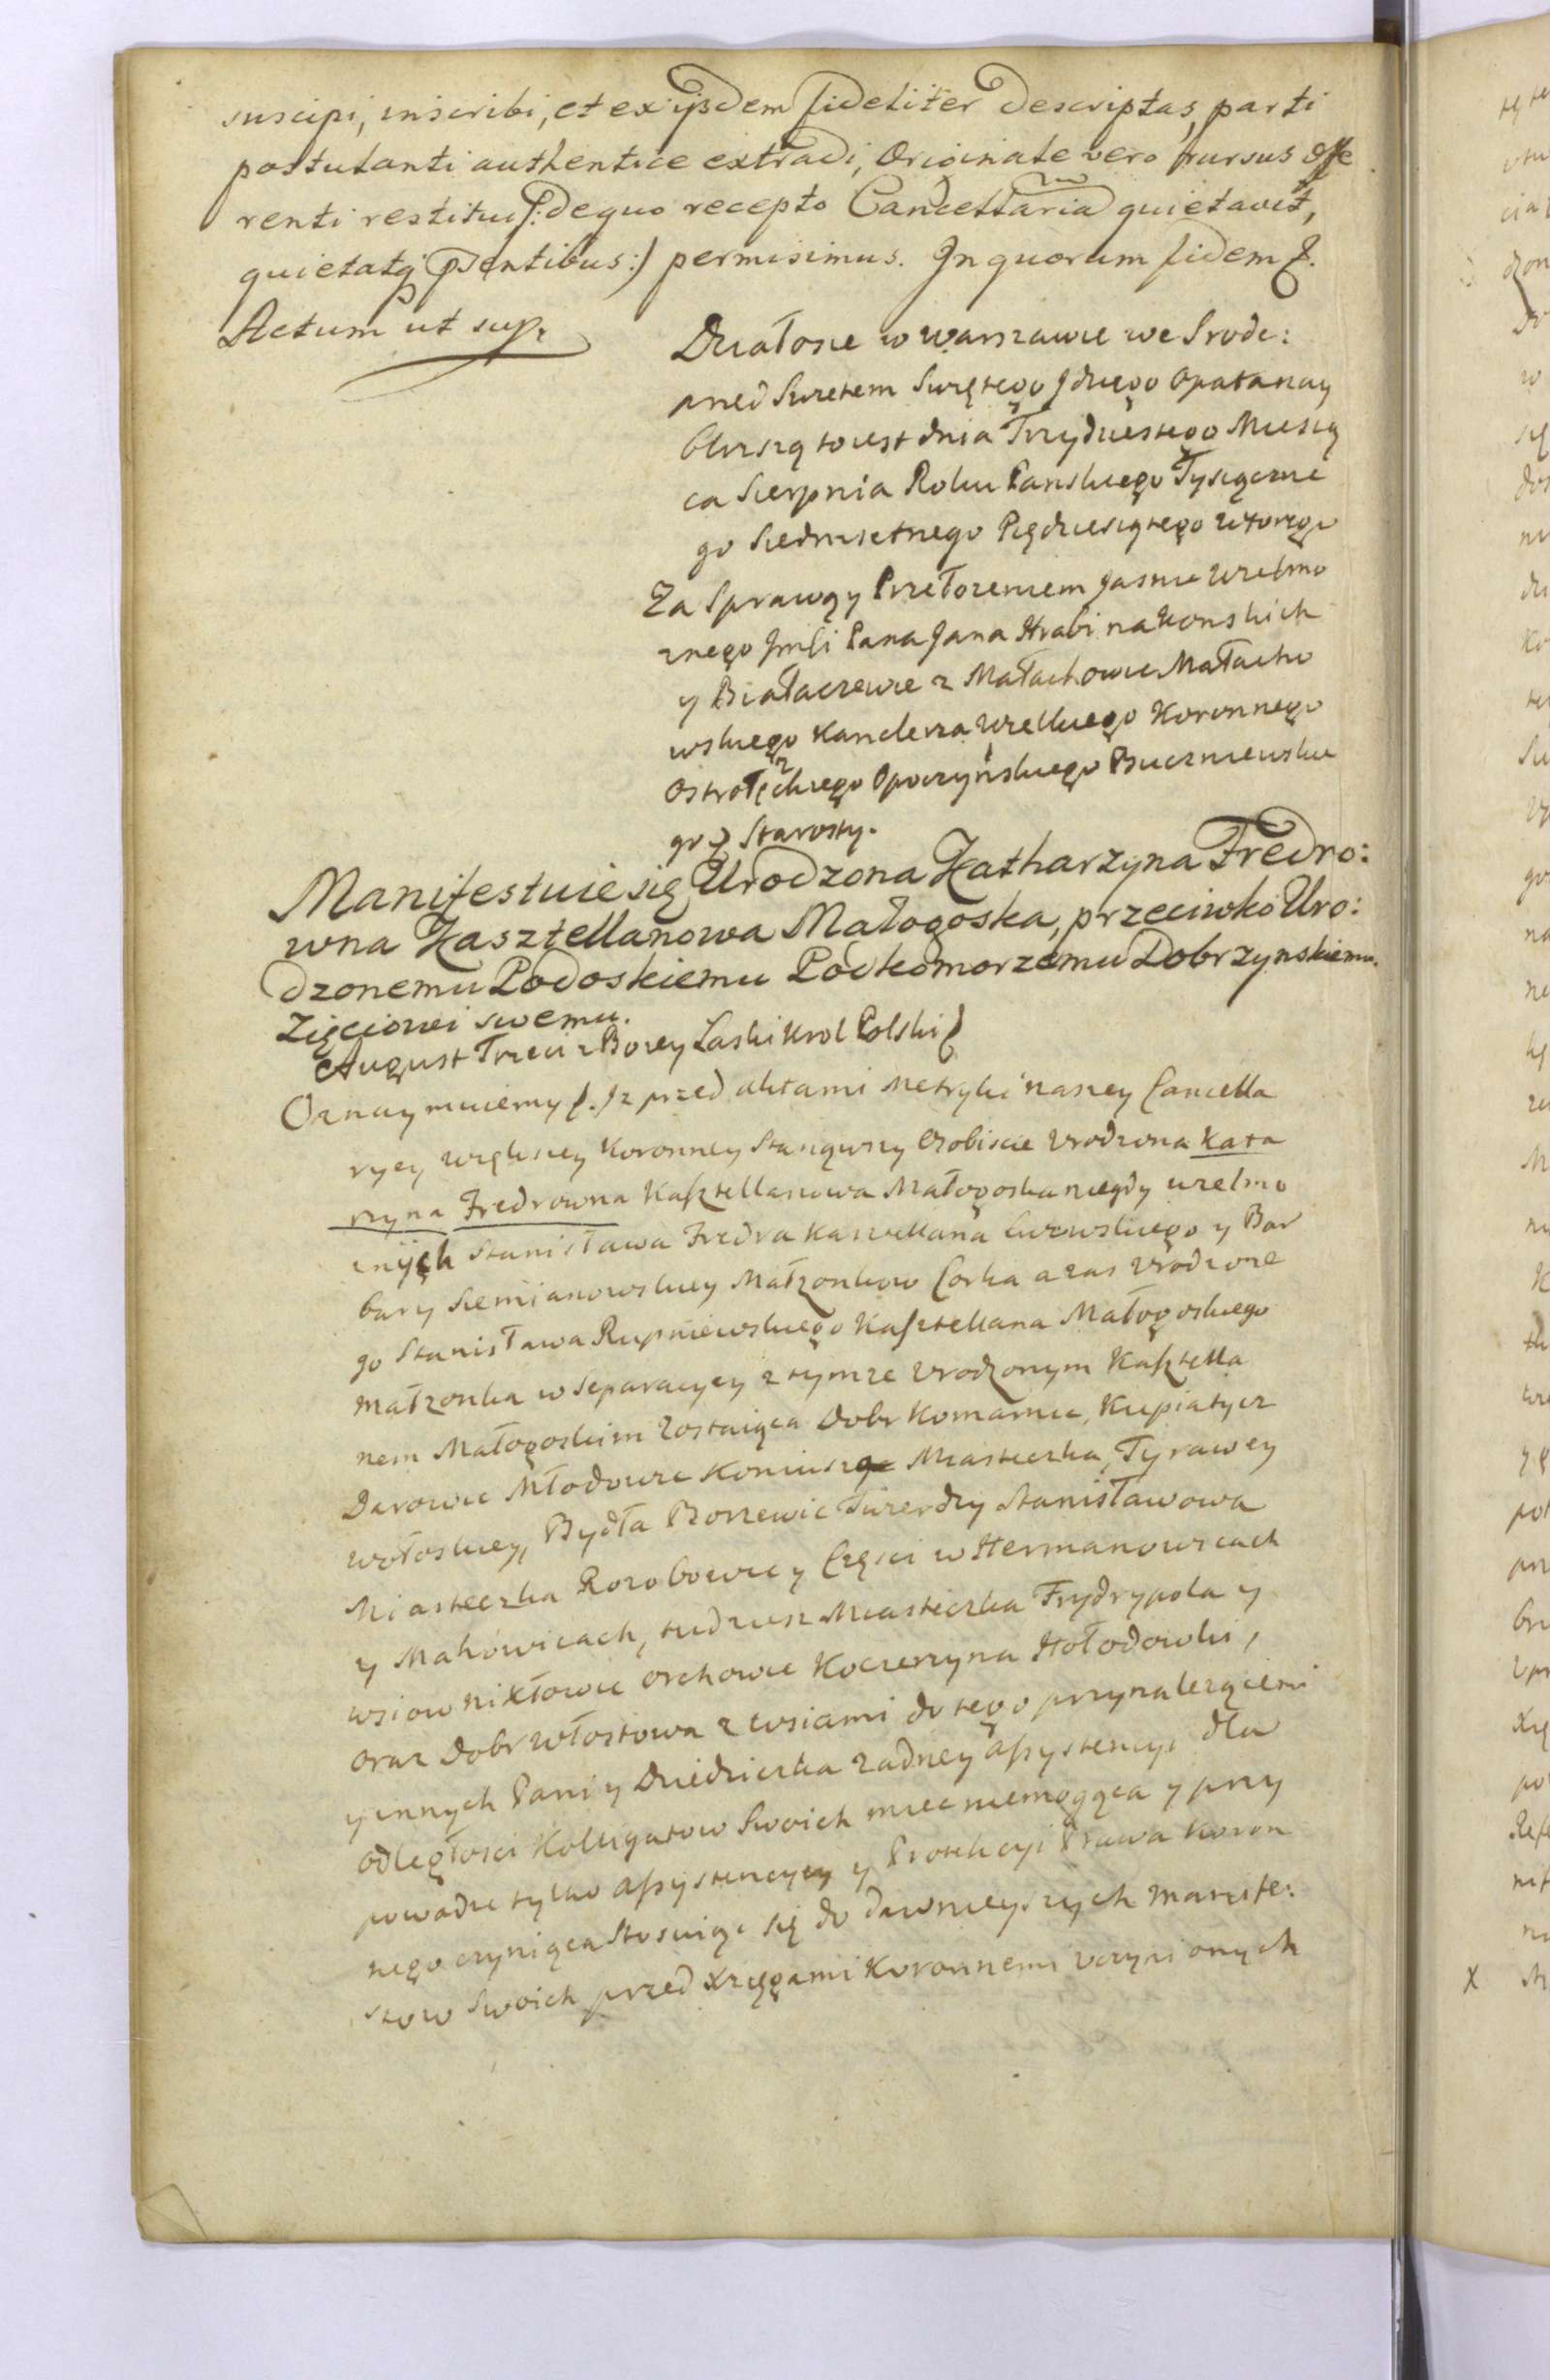 suscipi, inscribi, et ex ijsdem fideliter descriptas, parti
postulanti authentice extradi, Originale vero rursus offe
renti restitui /: de quo recepto Cancellariam quietavit,
quietatq pⁿsentibus :/ permisimus. In quorum fidem &.
Actum ut sup.
Działosie w Warszawie we Srode:
przed Swietem Swiętego Idziego Opata nay
blizszą to iest dnia Trzydziestego Miesią
ca Sierpnia Roku Panskiego Tysiączne
go Siedmsetnego Pięćdziesiątego wtorego
Za Sprawą y Przełozeniem Jasnie Wielmo
znego Jmći Pana Jana Hrabi na Konskich
y Białaczewie z Małachowic Małacho
wskiego Kanclerza Wielkiego Koronnego
Ostrołęckiego Opoczyńskiego
go & Starosty.
Manifestuie się Urodzona Katharzyna Fredro:
wna Kasztellanowa Małogoska, przeciwko Uro:
dzonemu Podoskiemu Podkomorzemu Dobrzynskiemu.
Zięciowi swemu.
August Trzeci z Bozey Łaski Krol Polski &
Oznaymuiemy &. Iz przed aktami Metryki naszey Cancella
ryey większey Koronney Stanąwszy Osobiscie Vrodzona Kata
rzyna Fredrowna Kasztellanowa Małogoska niegdy wielmo
znych Stanisława Fredra Kasztellana y Bar
bary Siemianowskiey Małzonkow Corka a zas Vrodzone
go Stanisława Rupniewskiego Kasztellana Małogoskiego
Małzonka w Separacyey z tymze Vrodzonym Kasztella
nem Małogoskim zostaiąca Dobr Komarnic, Kupiatycz
Darowic Młodowic Koniusze Miasteczka, Tyrawey
wołoskiey, Bydła Borzewic Twierdzy Stanisławowa
Miasteczka Rozobowic y Części w Hermanowicach
y Makowicach, tudziesz Miasteczka Frydrypola y
wsiow Nixłowic Orchowic Koczerzyna Hołodowki,
oraz Dobr Włostowa z wsiami do tego przynalezącemi
y innych Pani y Dziedziczka zadney assystencyi dla
odległosci Kolligatow Swoich miec niemogąca y przy
powadze tylko assystencyey y Protekcyi Prawa Koron
nego czyniąca Stosuiąc się do dawnieyszych manife:
stow Swoich przed Xięgami Koronnemi vczynionych